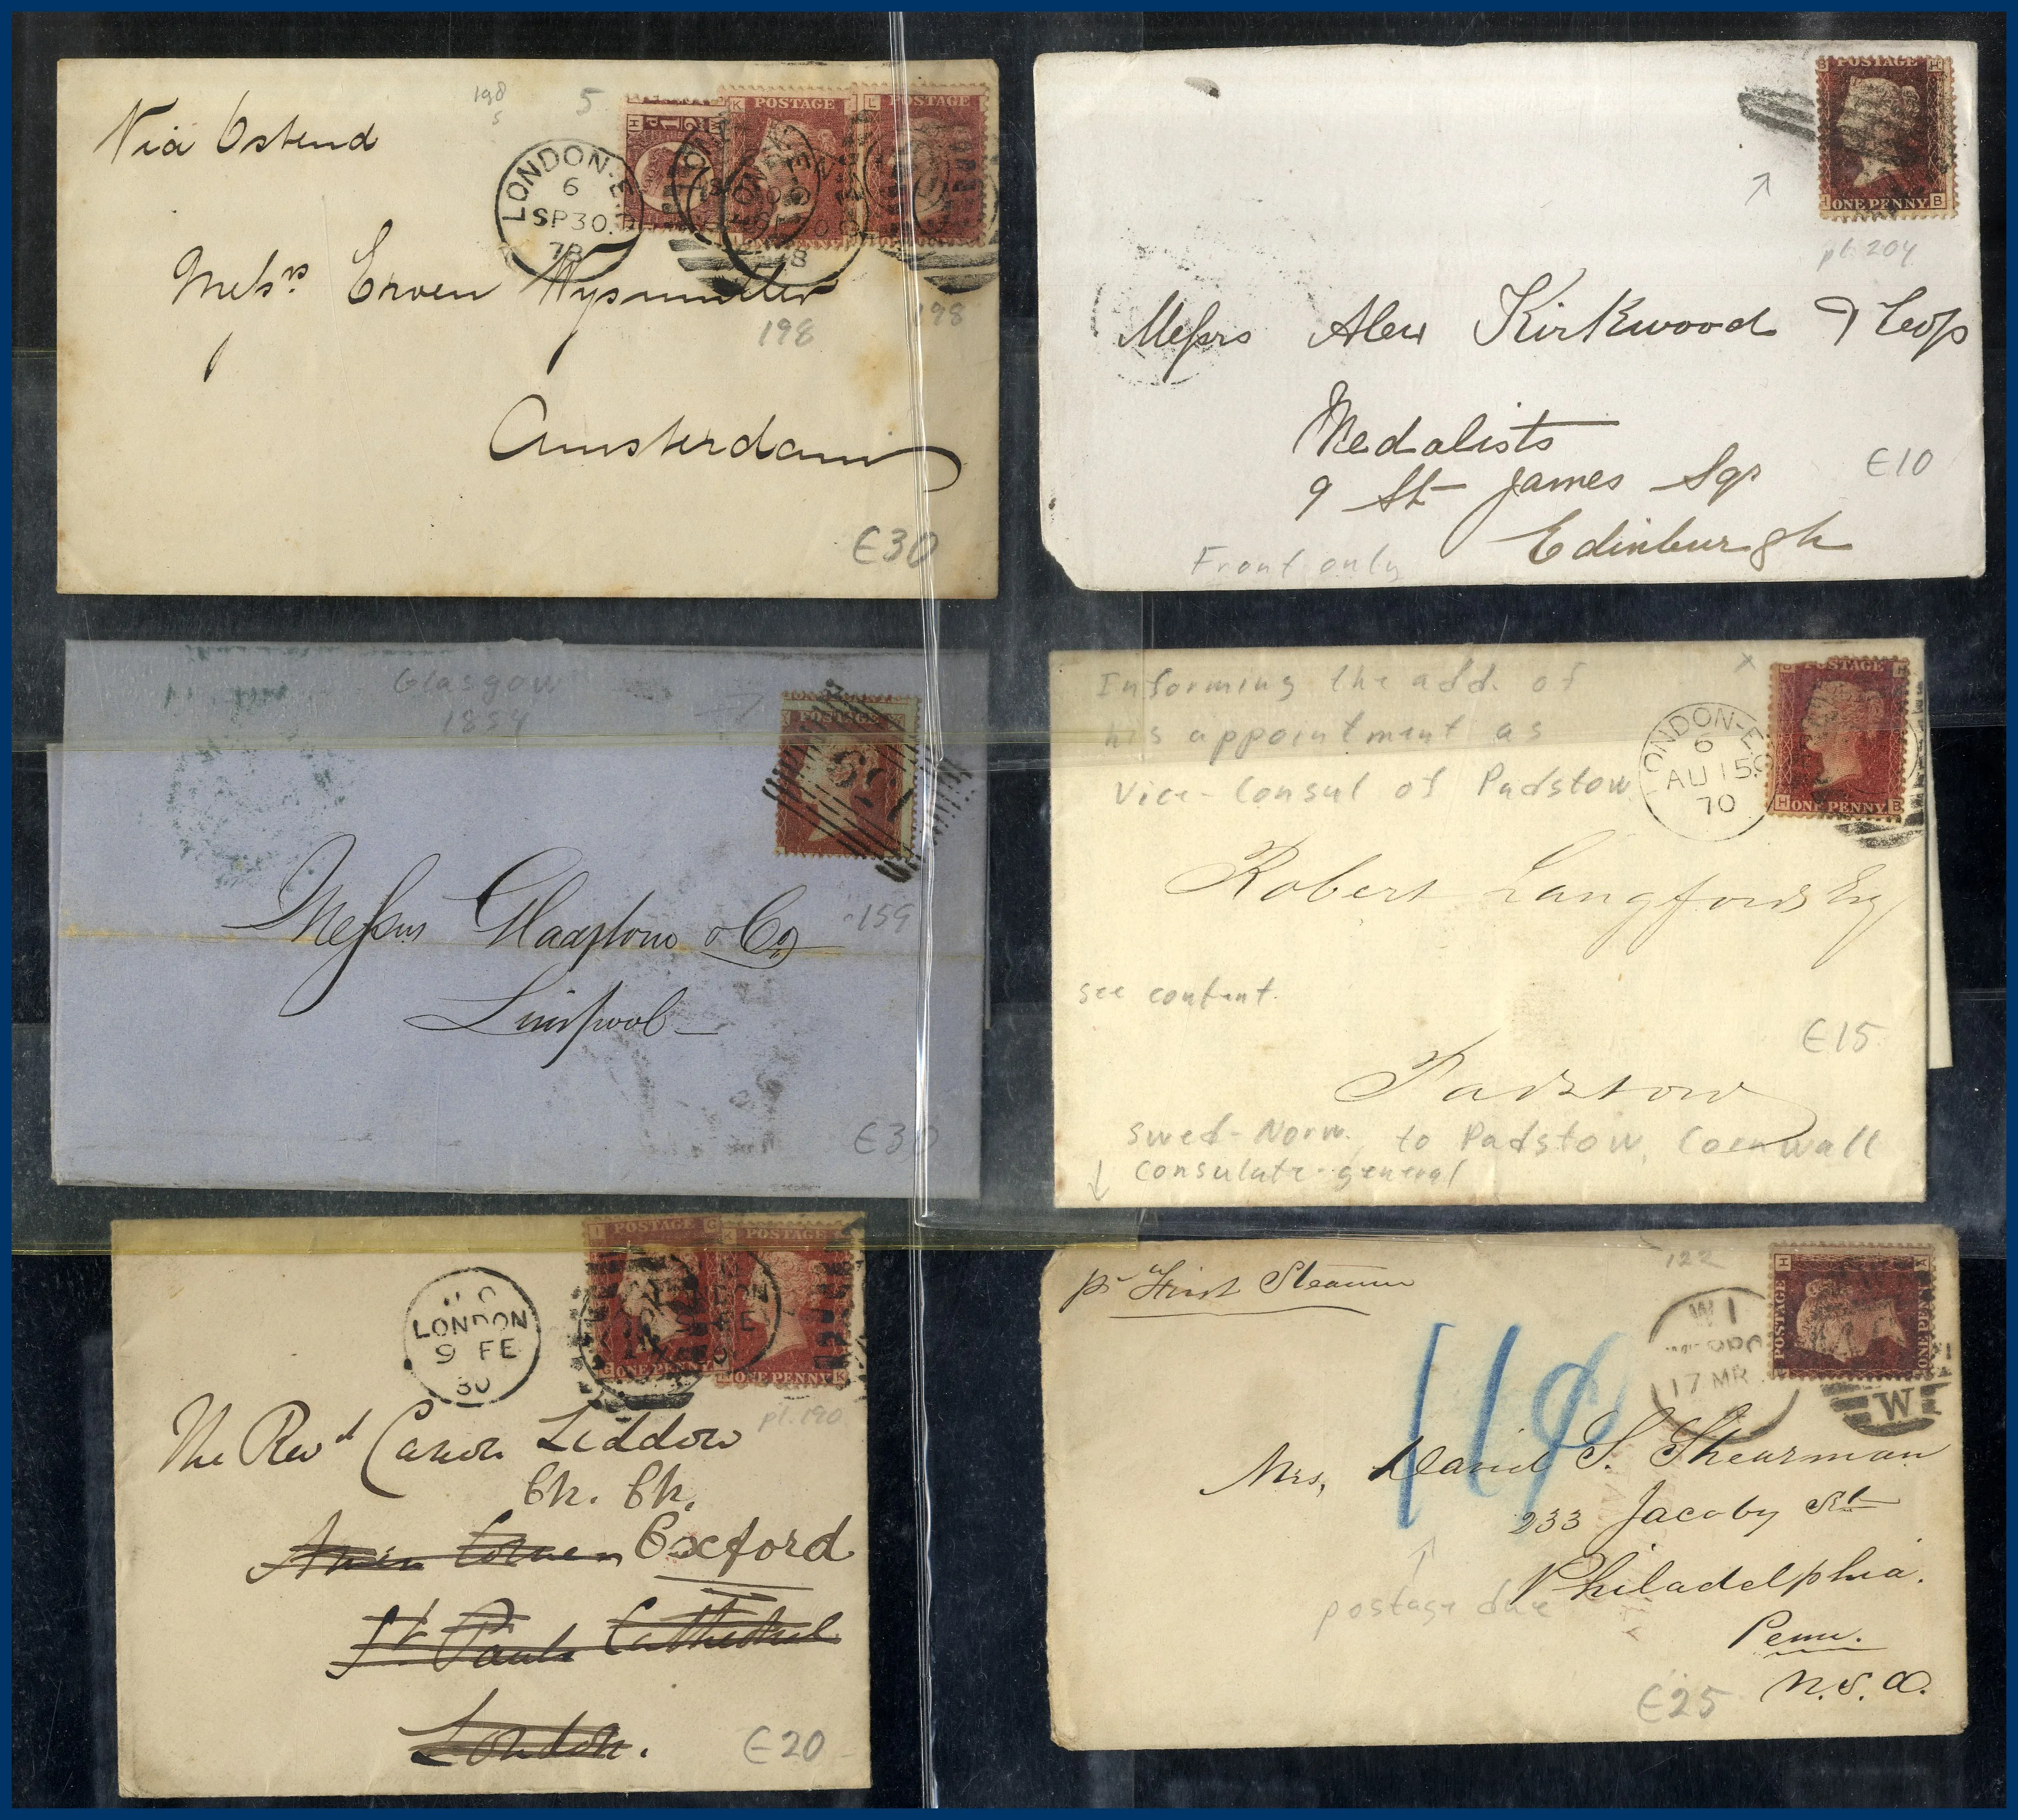 Via Ostend
198
5
5
LONDON-E
6
SP30
78
POSTAGE
POSTAGE
Mess.rs Erven Wysmuller
198
198
Amsterdam
€30
POSTAGE
ONE PENNY
pl. 204
Messrs Alex Kirkwood & Sons
Medalists
9 St James Sqr
Edinburgh
€10
Front only
Glasgow
1854
POSTAGE
159
Messrs Gladstone & Co
Liverpool
€30
Informing the add. of
his appointment as
Vice-Consul of Padstow
LONDON-E
6
AU 15
70
POSTAGE
H ONE PENNY B
Robert Langford Esq
see content
€15
Padstow
Swed-Norw. to Padstow, Cornwall
consulate-general
LONDON
9 FE
80
POSTAGE
POSTAGE
ONE PENNY
ONE PENNY
pl. 190
The Revd Canon Liddon
Ch. Ch.
Amen Corner Oxford
St Pauls Cathedral
London.
€20
pr First Steamer
122
W 1
17 MR
POSTAGE
ONE PENNY
W
Mrs, David S. Shearman
233 Jacoby St
Philadelphia.
postage due
Penn.
U.S.A.
€25